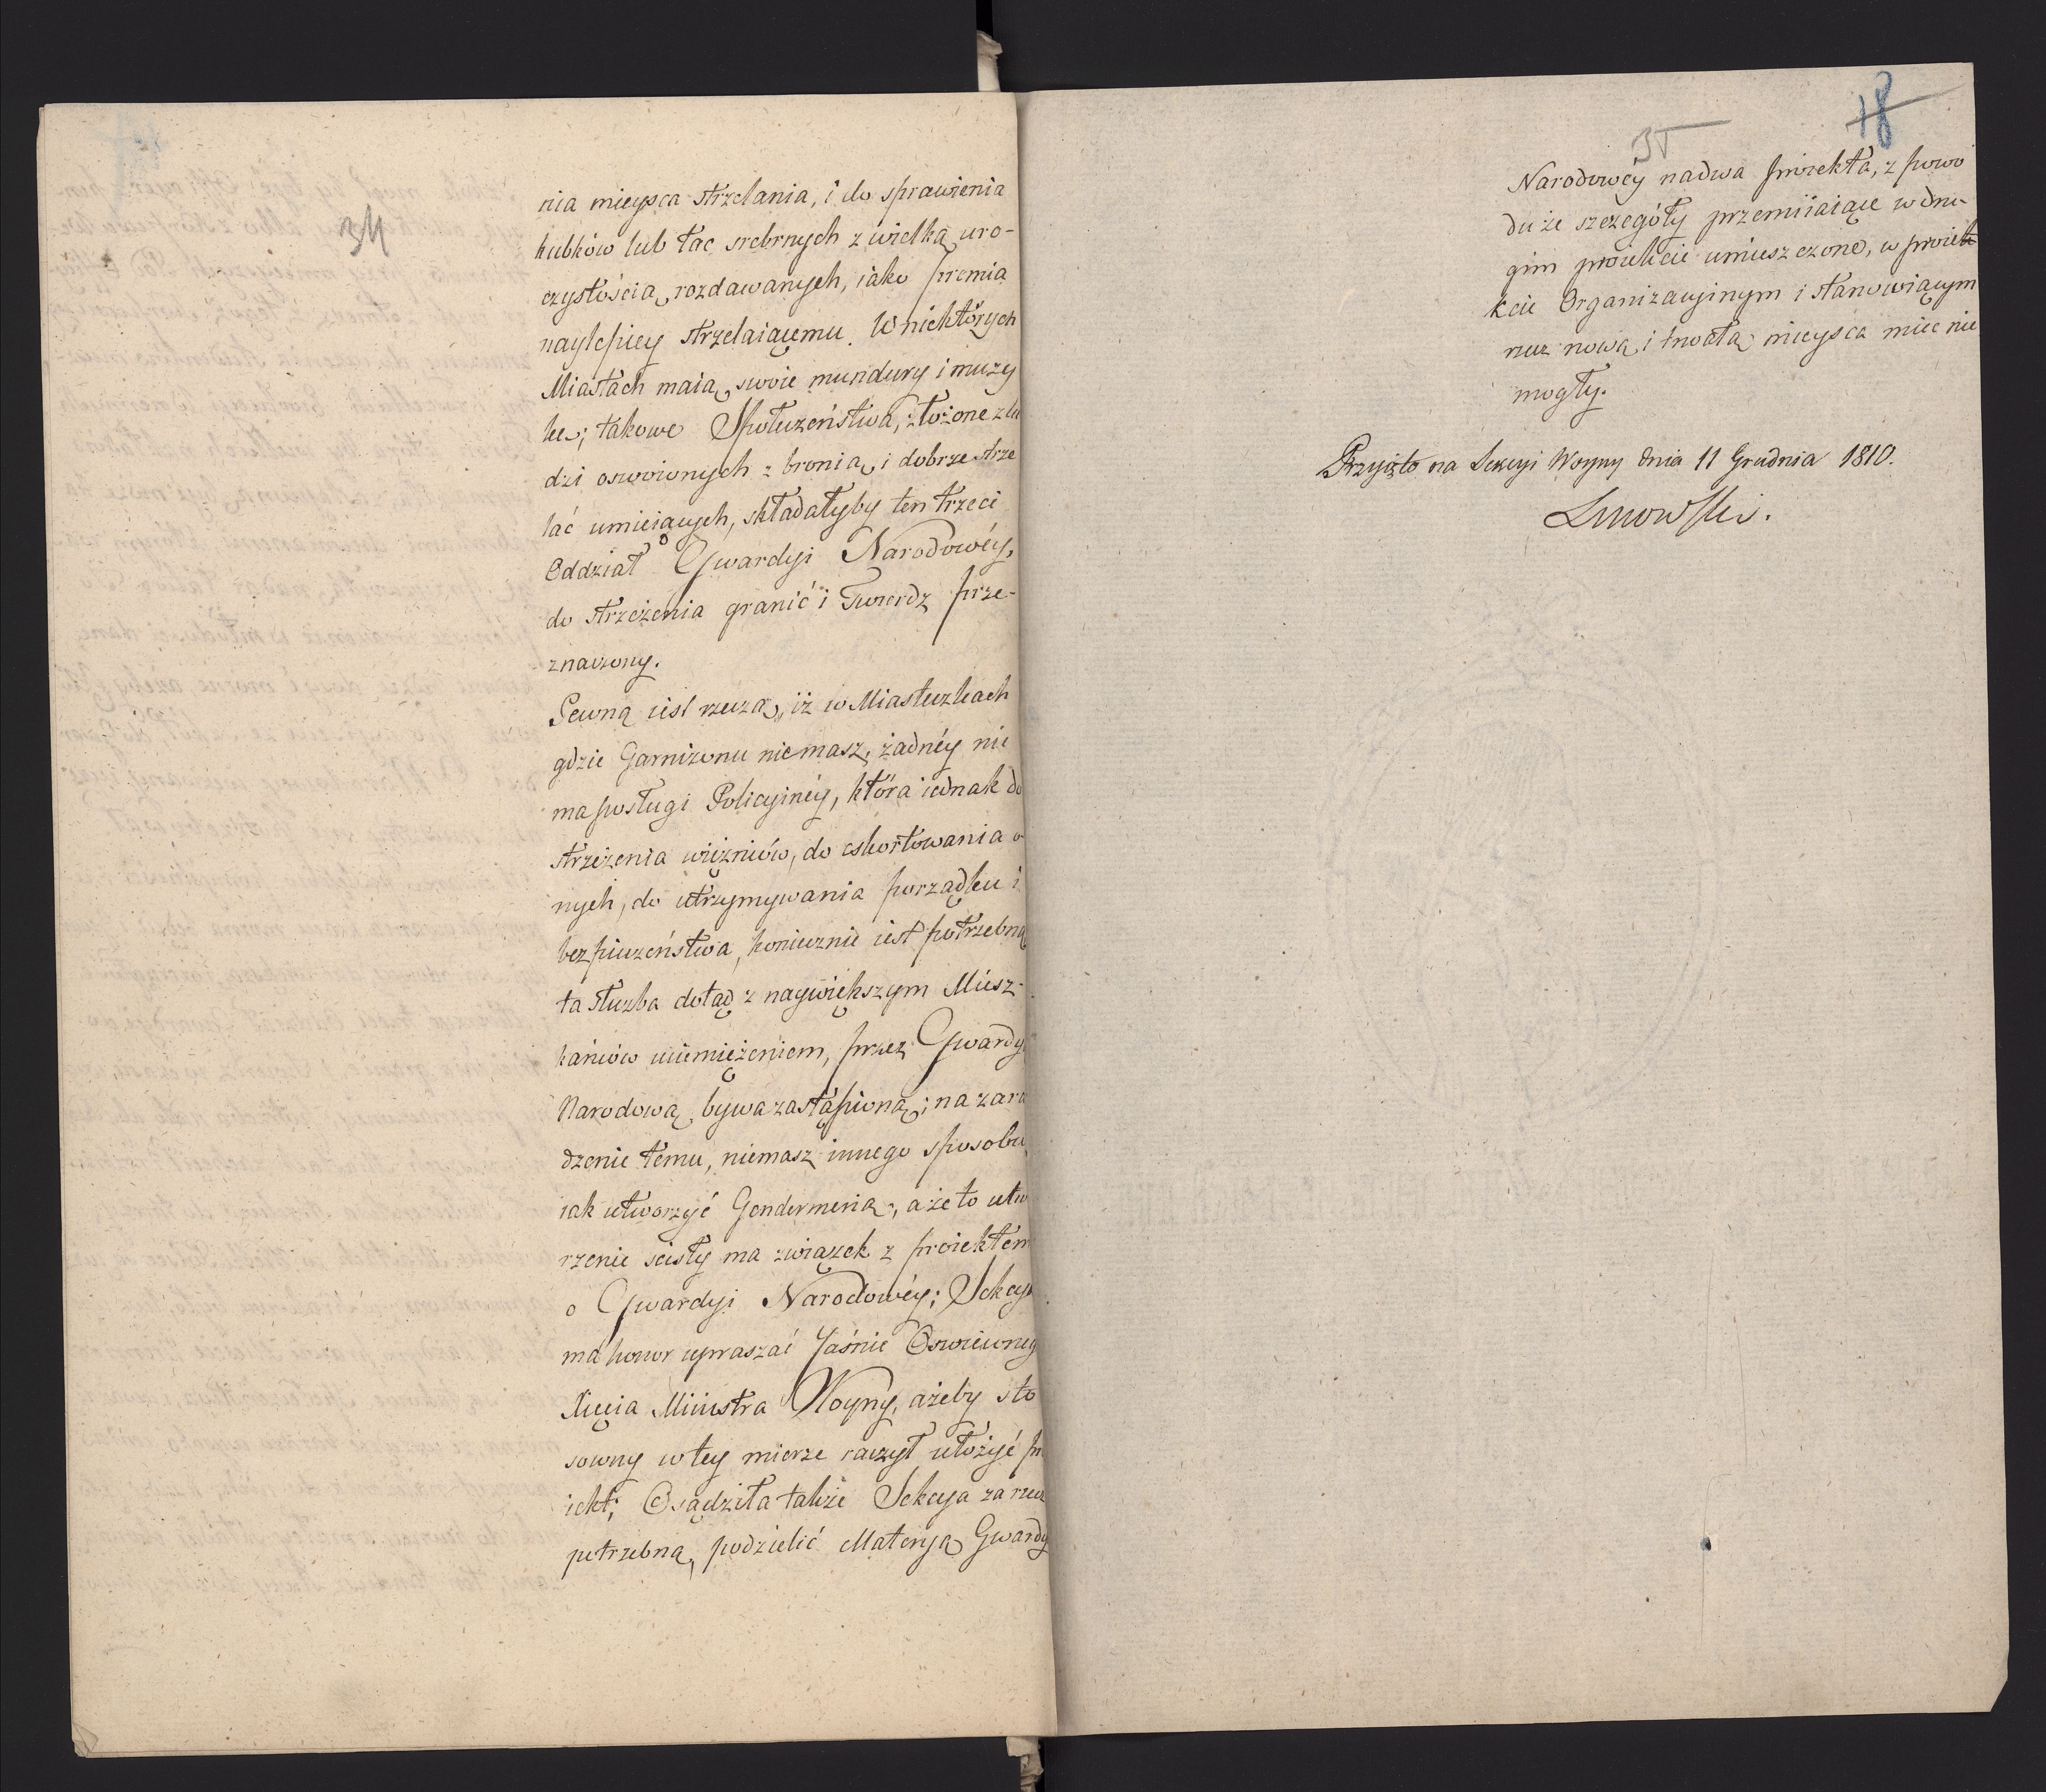 34
nia mieysca strzelania, i do sprawienia
kubków lub tac srebrnych z wielką uro-
czystością rozdawanych, iako premia
naylepiey strzelaiącemu. W niektórych
Miastach maią swoie mundury i muzy
kę; takowe Społeczeństwa, złożone z lu
dzi oswoionych z bronią i dobrze strze
lać umieiących, składałyby ten trzeci
Oddział Gwardyi Narodowéy,
do strzeżenia granic i Twierdz prze-
znaczony.
Pewną iest rzeczą, iż w Miasteczkach
gdzie Garnizonu niemasz, żadnéy nie
ma posługi Policyinéy, która iednak do
strzeżenia więzniów, do eskortowania o
nych, do utrzymywania porządku i
bezpieczeństwa, koniecznie iest potrzebną
ta służba dotąd z naywiększym Miesz-
kańców uciemiężeniem, przez Gwardyą
Narodową bywa zastąpioną; na zara
dzenie temu, niemasz innego sposobu,
iak utworzyć Gendermerią, a że to utwo
rzenie scisły ma związek z proiektem
o Gwardyi Narodowéy; Sekcya
ma honor upraszać Jaśnie Oswieconego
Xięcia Ministra Woyny, ażeby sto
sowny w tey mierze raczył ułożyć pro
iekt; Osądziła także Sekcya za rzecz
potrzebną, podzielić Materyą Gwardyi
18
35
Narodowéy na dwa proiekta, z powo
du że szczegóły przemiiaiące w dru-
gim proiekcie umieszczone, w proiek
kcie Organizacyinym i stanowiącym
rzecz nową i trwałą mieysca mieć nie
mogły.
Przyięto na Sekcyi Woyny dnia 11 Grudnia 1810.
Linowski.